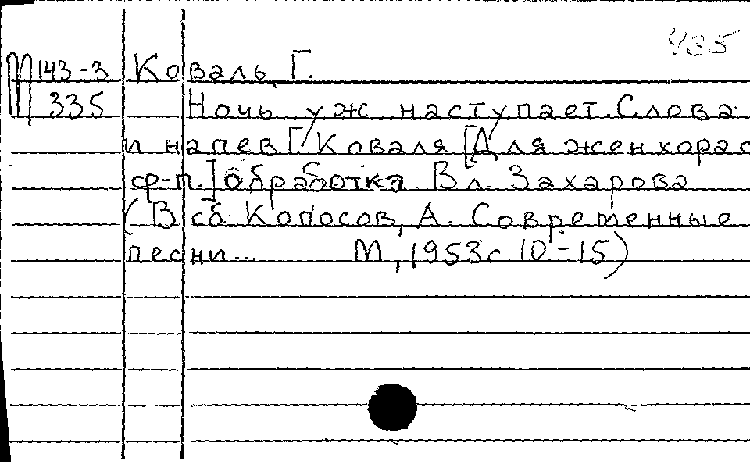 435
М 143-3 Коваль, Г.
335 Ночь уж наступает. Слова
и напев Г. Коваля [Для жен хора с
ф-п.] обработка Вл. Захарова
(В сб Колосов, А. Современные
песни... М, 1953 с 10-15)